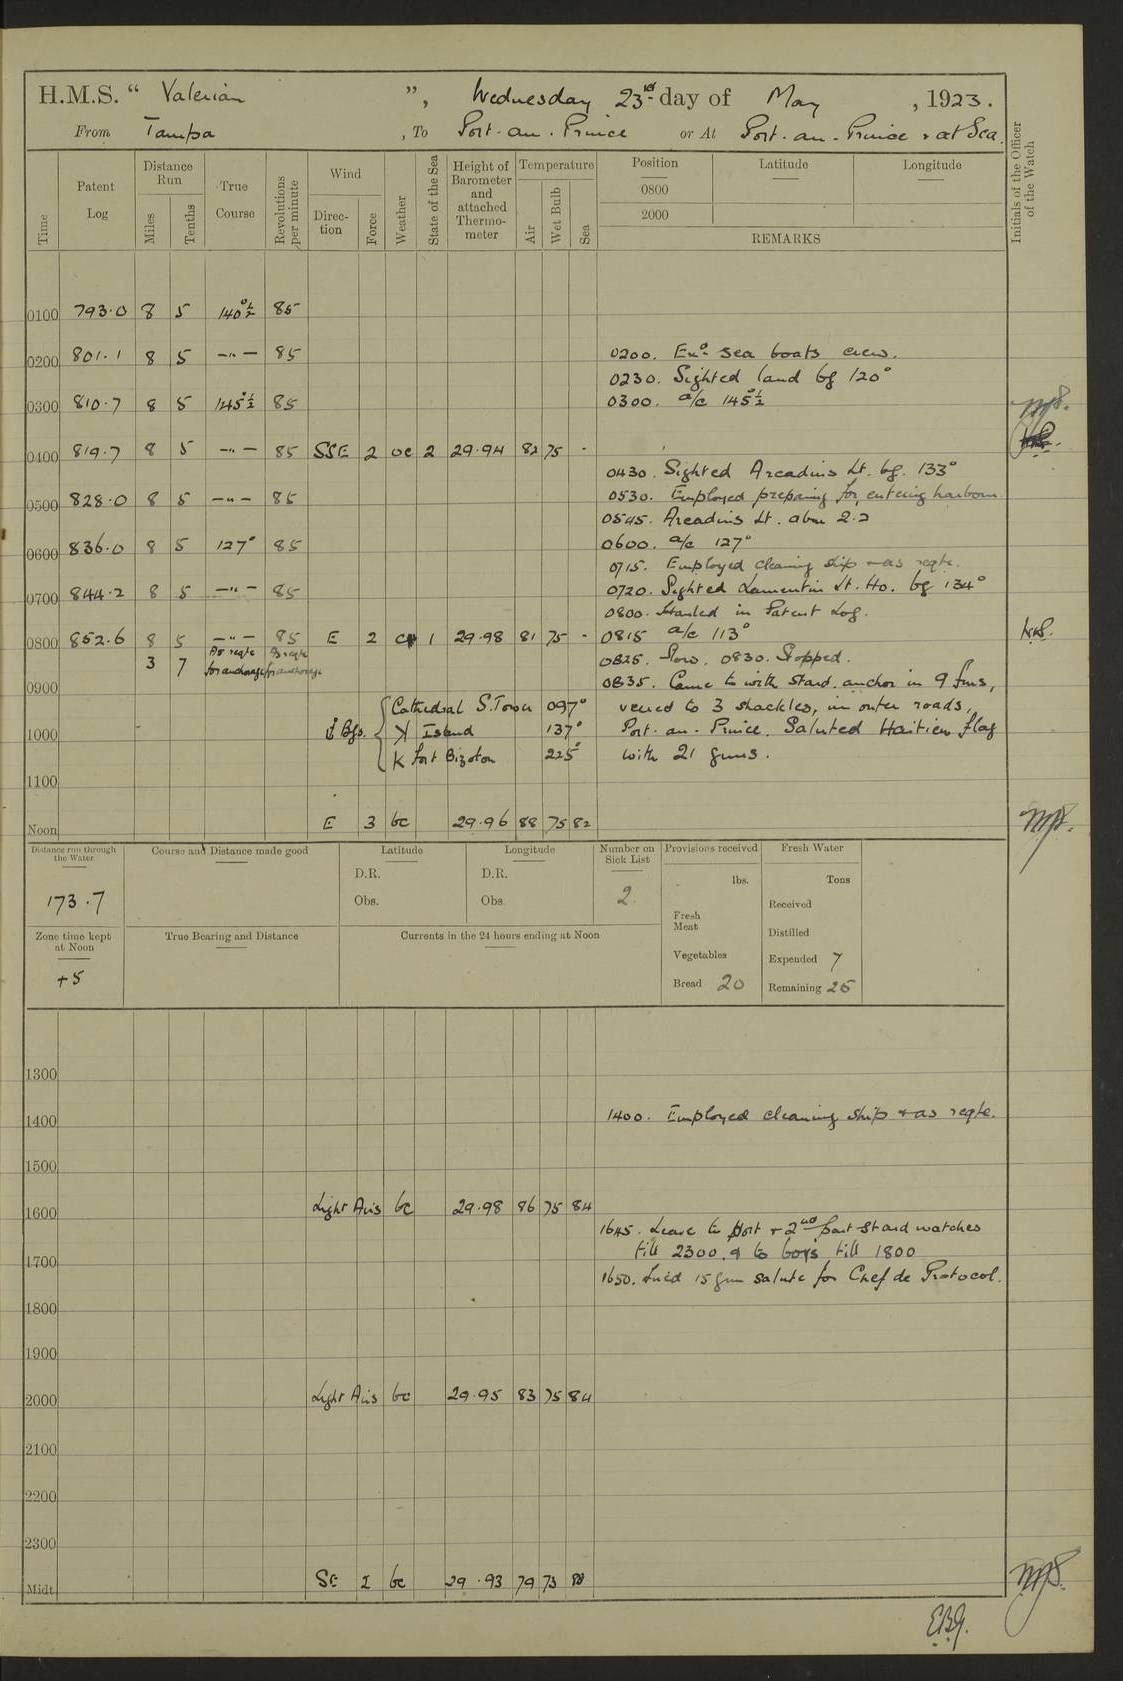 H.M.S. “ Valerian ”, Wednesday 23rd day of May , 1923.
From Tampa , To Port-au-Prince or At Port-au-Prince & at Sea.
Time
Patent Log
Distance Run
Miles
Tenths
True Course
Revolutions per minute
Wind
Direc-tion
Force
Weather
State of the Sea
Height of Barometer and attached Thermo-meter
Temperature
Air
Wet Bulb
Sea
Position
Latitude
Longitude
0800
2000
REMARKS
Initials of the Officer of the Watch
0100 793.0 8 5 140°½ 85
0200 801.1 8 5 —"— 85 0200. Exd. sea boats crew.
0230. Sighted land bg 120°
0300 810.7 8 5 145°½ 85 0300. a/c 145°½
0400 819.7 8 5 —"— 85 SSE 2 oc 2 29.94 82 75 -
0430. Sighted Arcadins Lt. bg. 133°
0500 828.0 8 5 —"— 85 0530. Employed preparing for entering harbour
0545. Arcadins Lt. abm 2.2
0600 836.0 8 5 127° 85 0600. a/c 127°
0715. Employed cleaning ship & as reqte.
0700 844.2 8 5 —"— 85 0720. Sighted Lamentin Lt. Ho. bg 134°
0800. Hauled in Patent Log.
0800 852.6 8 5 —"— 85 E 2 c 1 29.98 81 75 - 0815 a/c 113°
3 7 As reqte for anchorage As reqte for anchorage 0825. Slow. 0830. Stopped.
0900 0835. Came to with stard. anchor in 9 fms,
Bgs. Cathedral S. Tower 097° veered to 3 shackles, in outer roads,
1000 Island 137° Port-au-Prince. Saluted Haitien flag
Fort Bizoton 225° with 21 guns.
1100
Noon E 3 bc 29.96 88 75 82
Distance run through the Water
173.7
Course and Distance made good
Latitude
D.R.
Obs.
Longitude
D.R.
Obs.
Number on Sick List
2
Provisions received
lbs.
Fresh Meat
Vegetables
Bread 20
Fresh Water
Tons
Received
Distilled
Expended 7
Remaining 25
Zone time kept at Noon
+5
True Bearing and Distance
Currents in the 24 hours ending at Noon
1300
1400 1400. Employed cleaning ship & as reqte.
1500
1600 Light Airs bc 29.98 86 75 84
1645. Leave to Port & 2nd part Stard watches
till 2300. & to boys till 1800
1700 1650. Fired 15 gun salute for Chef de Protocol.
1800
1900
2000 Light Airs bc 29.95 83 75 84
2100
2200
2300
Midt. SE 1 bc 29.93 79 73